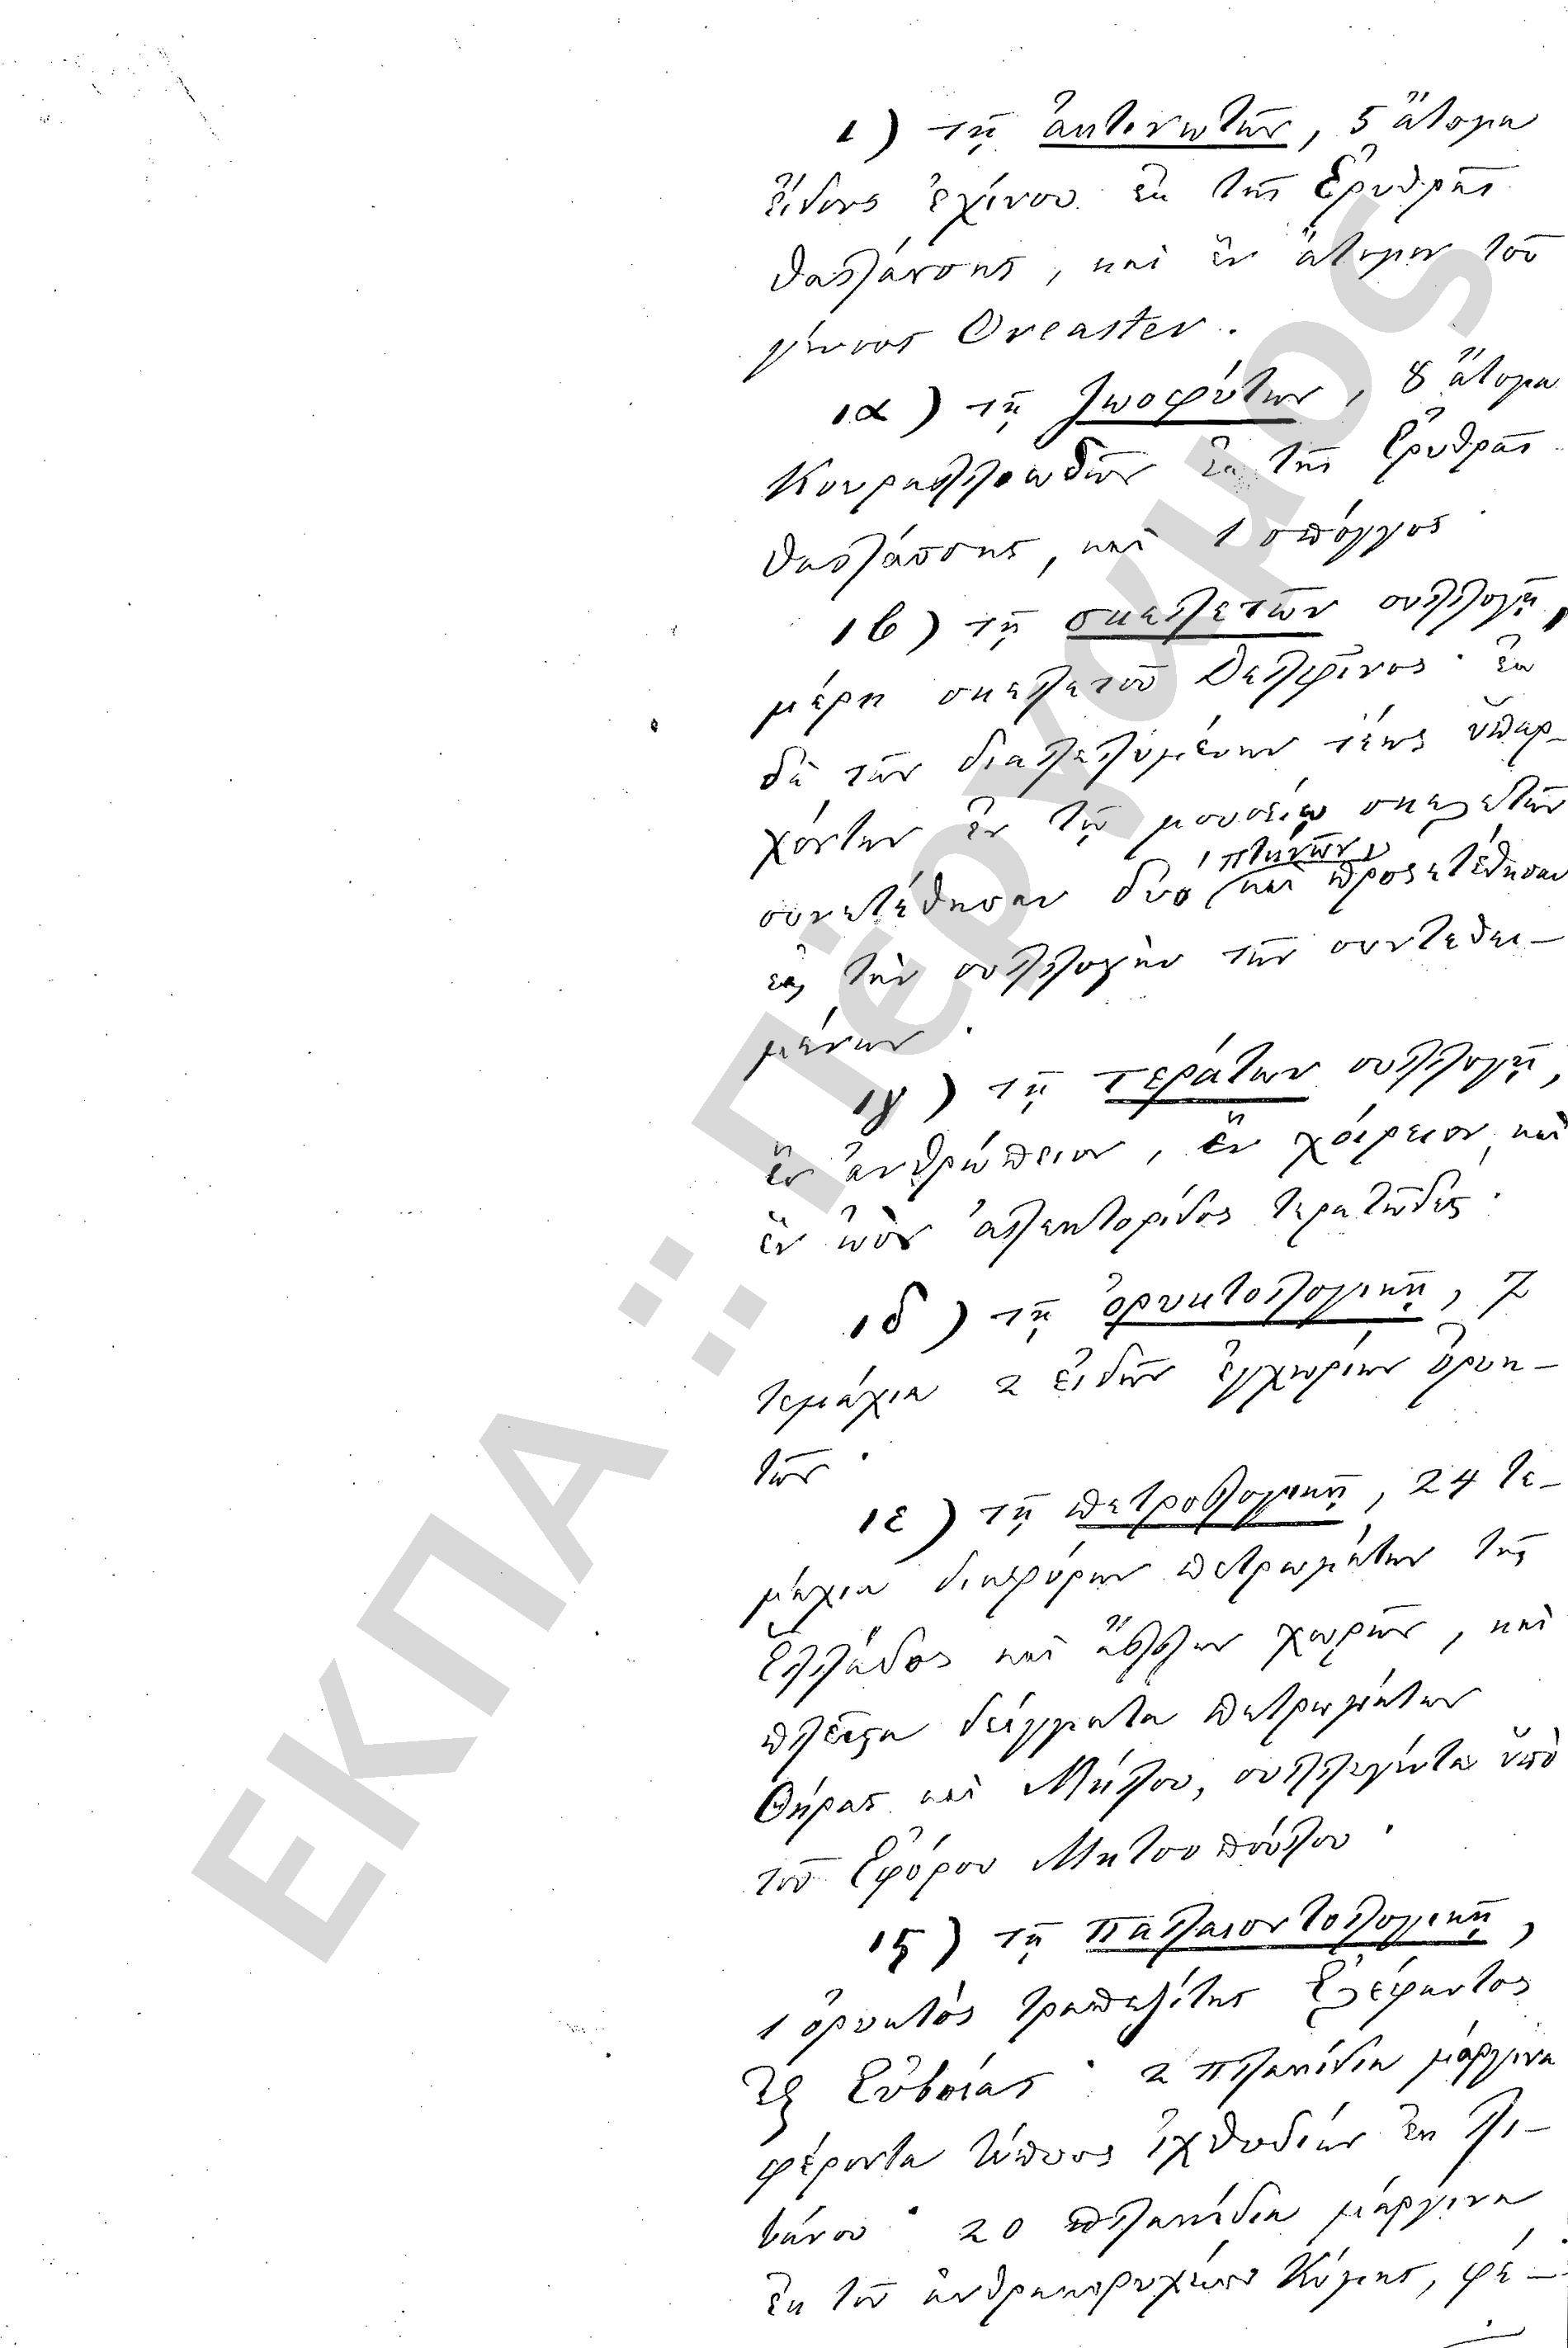 ι) τῇ ἀκτινωτῶν, 5 ἄτομα
εἴδους ἐχίνου ἐκ τῆς Ἐρυθρᾶς
θαλάσσης, καὶ ἓν ἄτομον τοῦ
γένους Oreaster.
ια) τῇ ζωοφύτων, 8 ἄτομα
Κουραλλιωδῶν ἐκ τῆς Ἐρυθρᾶς
θαλάσσης, καὶ 1 σπόγγος·
ιβ) τῇ σκελετῶν συλλογῇ,
μέρη σκελετοῦ Δελφῖνος· ἐκ
δὲ τῶν διαλελυμένων τέως ὑπαρ-
χόντων ἐν τῷ μουσείῳ σκελετῶν
συνετέθησαν δύο πτηνῶν καὶ προσετέθησαν
εἰς τὴν συλλογὴν τῶν συντεθει-
μένων·
ιγ) τῇ τεράτων συλλογῇ,
ἓν ἀνθρώπειον, ἓν χοίρειον, καὶ
ἓν ὠὸν ἀλεκτορίδος τερατῶδες·
ιδ) τῇ ὀρυκτολογικῇ, 7
τεμάχια 2 εἰδῶν ἐγχωρίων ὀρυκ-
τῶν·
ιε) τῇ πετρολογικῇ, 24 τε-
μάχια διαφόρων πετρωμάτων τῆς
Ἑλλάδος καὶ ἄλλων χωρῶν, καὶ
πλεῖστα δείγματα πετρωμάτων
Θήρας καὶ Μήλου, συλλεγέντα ὑπὸ
τοῦ Ἐφόρου Μητσοπούλου·
ις) τῇ παλαιοντολογικῇ,
1 ὀρυκτὸς τραπεζίτης Ἐλέφαντος
ἐξ Εὐβοίας· 2 πλακίδια μάργινα
φέροντα τύπους ἰχθυδίων ἐκ Λι-
βάνου· 20 πλακίδια μάργινα
ἐκ τοῦ ἀνθρακορυχείου Κύμης, φέ-
ΕΚΠΑ Πέργαμος